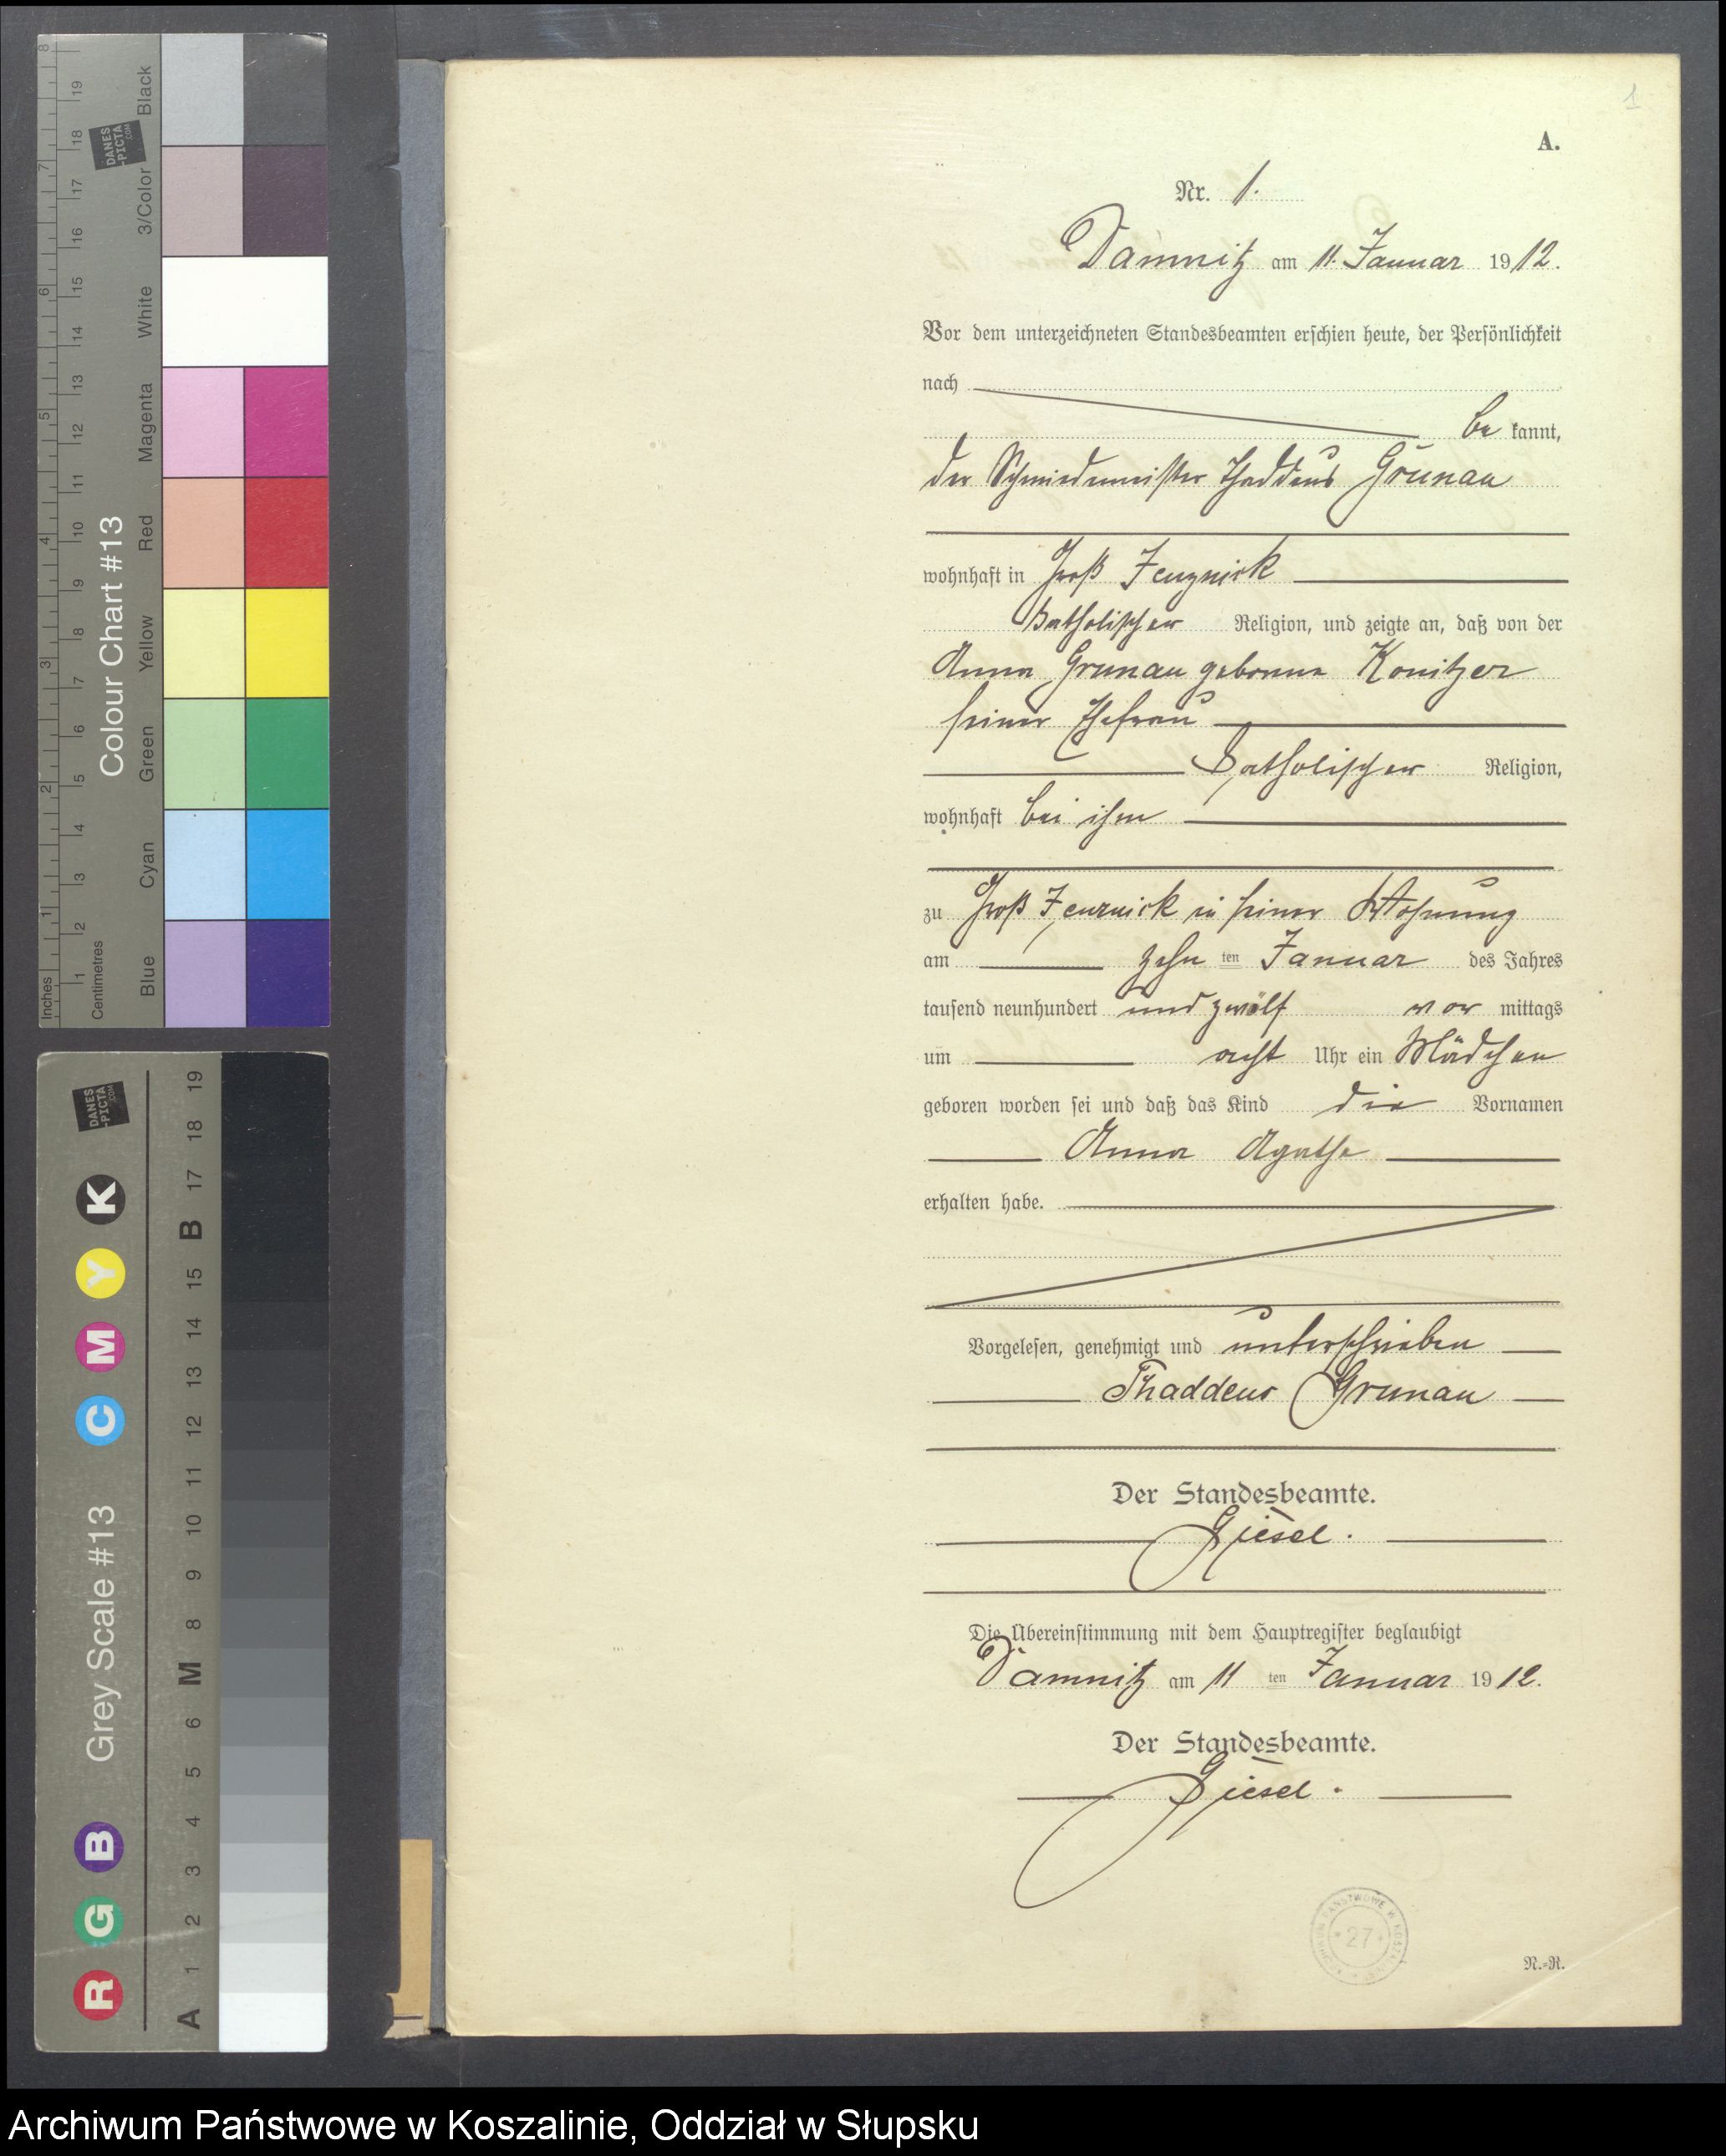 1
A.
Nr. 1.
Damnitz am 11. Januar 1912.
Vor dem unterzeichneten Standesbeamten erschien heute, der Persönlichkeit
nach
be kannt,
der Schmiedemeister Thaddeus Grunau
wohnhaft in Groß Jenznick
katholischer Religion, und zeigte an, daß von der
Anna Grunau geborene Konitzer
seiner Ehefrau
katholischer Religion,
wohnhaft bei ihm
zu Groß Jenznick in seiner Wohnung
am zehn ten Januar des Jahres
tausend neunhundert und zwölf vor mittags
um acht Uhr ein Mädchen
geboren worden sei und daß das Kind die Vornamen
Anna Agathe
erhalten habe.
Vorgelesen, genehmigt und unterschrieben
Thaddeus Grunau
Der Standesbeamte.
Giesel.
Die Übereinstimmung mit dem Hauptregister beglaubigt
Damnitz am 11 ten Januar 1912.
Der Standesbeamte.
Giesel.
27
N.-R.
Colour Chart #13
Black
3/Color
White
Magenta
Red
Yellow
Green
Cyan
Blue
Inches
Centimetres
1 2 3 4 5 6 7 8
1 2 3 4 5 6 7 8 9 10 11 12 13 14 15 16 17 18 19
DANES
-PICTA
.COM
Grey Scale #13
R G B C M Y K
A 1 2 3 4 5 6 M 8 9 10 11 12 13 14 15 B 17 18 19
DANES
-PICTA
.COM
Archiwum Państwowe w Koszalinie, Oddział w Słupsku